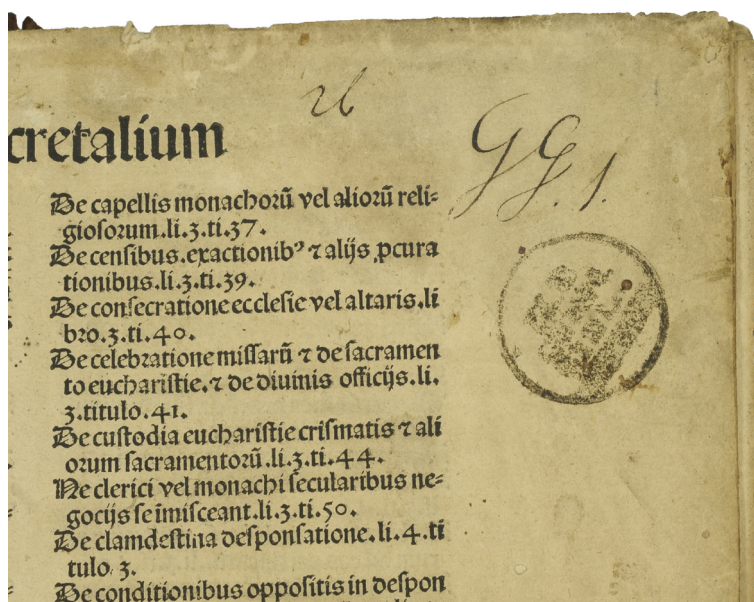 26
GG. 1.
cretalium
De capellis monachorū vel aliorū reli⸗
giosorum.li.3.ti.37.
De censibus.exactionibꝰ ⁊ alijs ꝓcura
tionibus.li.3.ti.39.
De consecratione ecclesie vel altaris.li
bro.3.ti.40.
De celebratione missarū ⁊ de sacramen
to eucharistie.⁊ de diuinis officijs.li.
3.titulo.41.
De custodia eucharistie crismatis ⁊ ali
orum sacramentorū.li.3.ti.44.
Ne clerici vel monachi secularibus ne⸗
gocijs se īmisceant.li.3.ti.50.
De clamdestina desponsatione.li.4.ti
tulo.3.
De conditionibus oppositis in despon